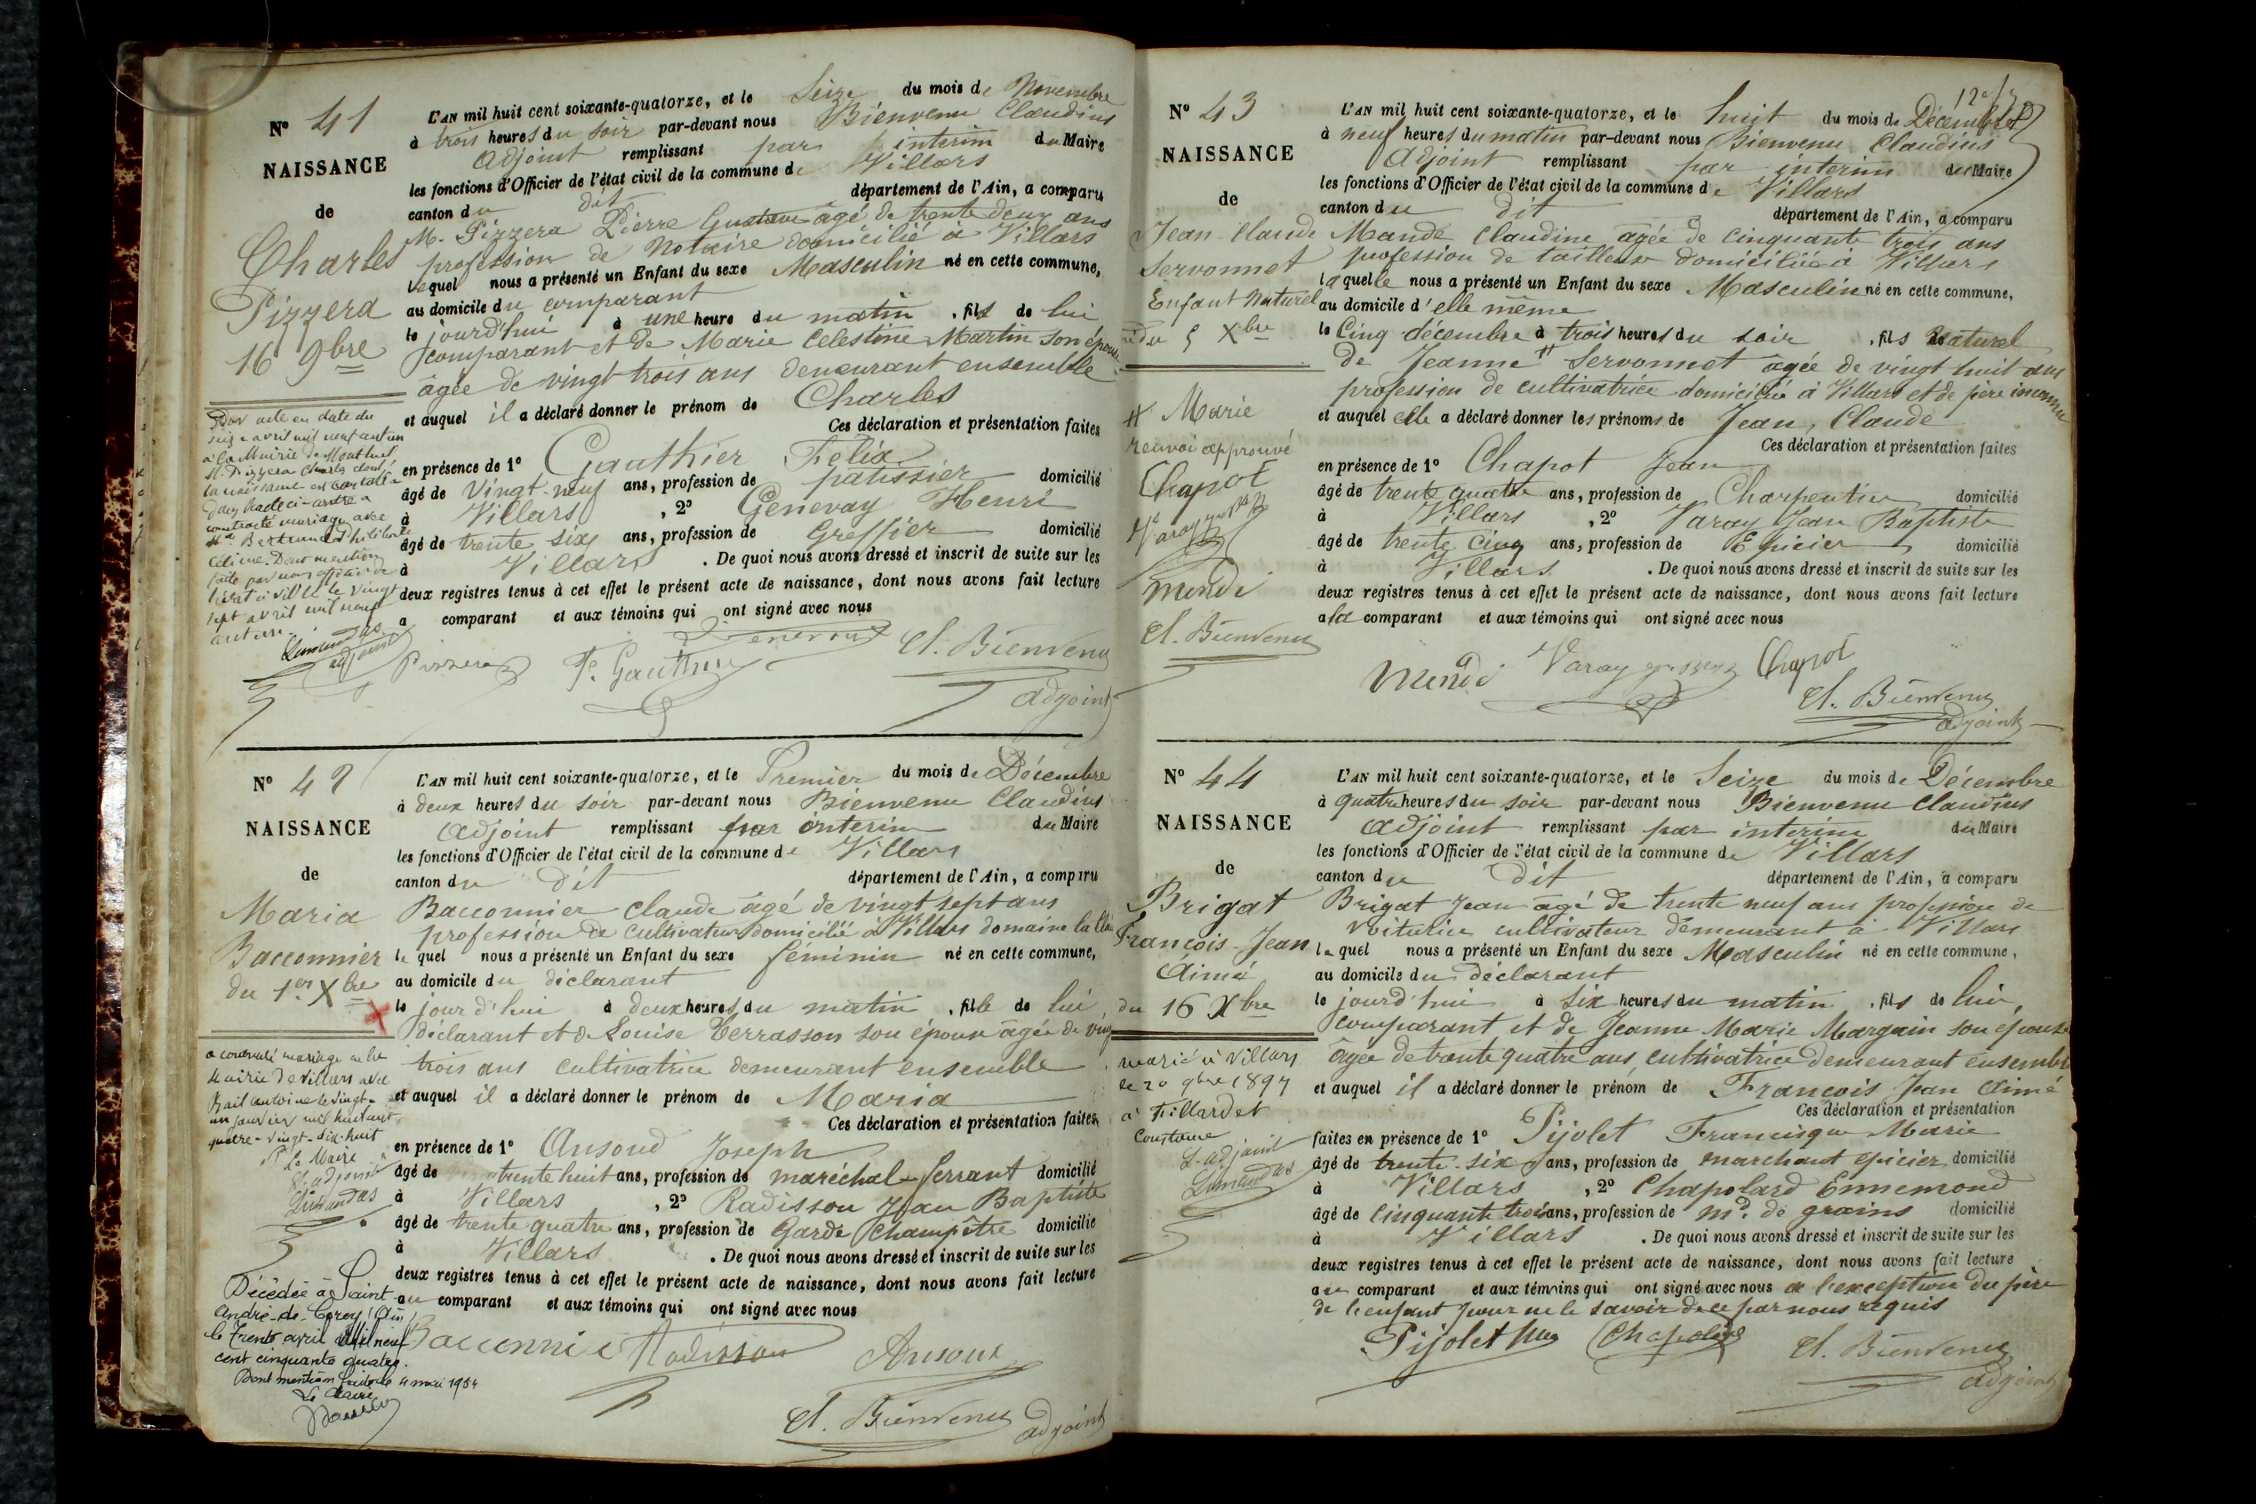 N° 41
NAISSANCE
de
Charles
Pizzera
16 9bre
L'AN mil huit cent soixante-quatorze, et le Seize du mois de Novembre
à trois heures du soir par-devant nous Bienvenu Claudius
adjoint remplissant par interim du Maire
les fonctions d'Officier de l'état civil de la commune de Villars
canton du dit département de l'Ain, a comparu
M. Pizzera Pierre Gustave âgé de trente deux ans
profession de Notaire domicilié à Villars
lequel nous a présenté un Enfant du sexe Masculin né en cette commune,
au domicile du comparant
le jourd'hui à une heure du matin, fils de lui
comparant et de Marie Celestine Martin son épouse
âgée de vingt trois ans demeurant ensemble
et auquel il a déclaré donner le prénom de Charles
Ces déclaration et présentation faites
en présence de 1° Gauthier Felix
âgé de Vingt-neuf ans, profession de patissier domicilié
à Villars, 2° Genevay Henri
âgé de trente six ans, profession de Greffier domicilié
à Villars. De quoi nous avons dressé et inscrit de suite sur les
deux registres tenus à cet effet le présent acte de naissance, dont nous avons fait lecture
a comparant et aux témoins qui ont signé avec nous
Pizzera F. Gauthier Cl. Bienvenu
adjoint
Par acte en date du
seize avril mil neuf cent un
à la Mairie de Montluel
M. Pizzera Charles dont
la naissance est constatée
dans l'acte ci-contre a
contracté mariage avec
Mlle Bertrand Philiberte
Dont mention
faite par nous officier de
l'état civil le vingt
sept avril mil neuf
cent un.
adjoint
N° 42
NAISSANCE
de
Maria
Bacconnier
du 1er Xbre
L'AN mil huit cent soixante-quatorze, et le Premier du mois de Décembre
à deux heures du soir par-devant nous Bienvenu Claudius
adjoint remplissant par interim du Maire
les fonctions d'Officier de l'état civil de la commune de Villars
canton du dit département de l'Ain, a comparu
Bacconnier Claude âgé de vingt sept ans
profession de cultivateur domicilié à Villars domaine
le quel nous a présenté un Enfant du sexe féminin né en cette commune,
au domicile du déclarant
le jourd'hui à deux heures du matin, fille de lui
déclarant et de Louise Terrasson son épouse âgée de vingt
trois ans cultivatrice demeurant ensemble
et auquel il a déclaré donner le prénom de Maria
Ces déclaration et présentation faites
en présence de 1° Ansoud Joseph
âgé de trente huit ans, profession de maréchal-ferrant domicilié
à Villars, 2° Radisson Jean Baptiste
âgé de trente quatre ans, profession de Garde Champêtre domicilié
à Villars. De quoi nous avons dressé et inscrit de suite sur les
deux registres tenus à cet effet le présent acte de naissance, dont nous avons fait lecture
au comparant et aux témoins qui ont signé avec nous
Bacconnier Radisson Ansoud
Cl. Bienvenu adjoint
a contracté mariage à la
Mairie de Villars avec
Rail Antoine le vingt-
un janvier mil huit cent
quatre-vingt-dix-huit
Pr Le Maire
L'adjoint
Décédée à Saint
André-de-Corcy (Ain)
le Trente avril Mil neuf
cent cinquante quatre.
Dont mention faite le 4 mai 1954
Le Maire
N° 43
NAISSANCE
de
Jean Claude
Servonnet
Enfant Naturel
né du 5 Xbre
L'AN mil huit cent soixante-quatorze, et le huit du mois de Décembre
à neuf heures du matin par-devant nous Bienvenu Claudius
adjoint remplissant par interim du Maire
les fonctions d'Officier de l'état civil de la commune de Villars
canton du dit département de l'Ain, a comparu
Mande Claudine âgée de cinquante trois ans
profession de tailleuse domiciliée à Villars
laquelle nous a présenté un Enfant du sexe Masculin né en cette commune,
au domicile d'elle même
le Cinq décembre à trois heures du soir, fils naturel
de Jeanne # Servonnet âgée de vingt huit ans
profession de cultivatrice domiciliée à Villars et de père inconnu
et auquel elle a déclaré donner les prénoms de Jean, Claude
Ces déclaration et présentation faites
en présence de 1° Chapot Jean
âgé de trente quatre ans, profession de Charpentier domicilié
à Villars, 2° Varay Jean Baptiste
âgé de trente Cinq ans, profession de Epicier domicilié
à Villars. De quoi nous avons dressé et inscrit de suite sur les
deux registres tenus à cet effet le présent acte de naissance, dont nous avons fait lecture
a la comparant et aux témoins qui ont signé avec nous
Varay Chapot
Cl. Bienvenu
adjoint
# Marie
renvoi approuvé
Chapot
Varay
Cl. Bienvenu
N° 44
NAISSANCE
de
Brigat
François-Jean
Aimé
du 16 Xbre
L'AN mil huit cent soixante-quatorze, et le Seize du mois de Décembre
à quatre heures du soir par-devant nous Bienvenu Claudius
adjoint remplissant par interim du Maire
les fonctions d'Officier de l'état civil de la commune de Villars
canton du dit département de l'Ain, a comparu
Brigat Jean âgé de trente neuf ans profession de
voiturier cultivateur demeurant à Villars
le quel nous a présenté un Enfant du sexe Masculin né en cette commune,
au domicile du déclarant
le jourd'hui à six heures du matin, fils de lui
comparant et de Jeanne Marie Margain son épouse
âgée de trente quatre ans, cultivatrice demeurant ensemble
et auquel il a déclaré donner le prénom de François Jean Aimé
Ces déclaration et présentation
faites en présence de 1° Pijolet Francisque Marie
âgé de trente-six ans, profession de marchant épicier domicilié
à Villars, 2° Chapolard Ennemond
âgé de Cinquante trois ans, profession de md. de grains domicilié
à Villars. De quoi nous avons dressé et inscrit de suite sur les
deux registres tenus à cet effet le présent acte de naissance, dont nous avons fait lecture
au comparant et aux témoins qui ont signé avec nous à l'exception du père
de l'enfant pour ne le savoir de ce par nous requis
Pijolet Chapolard Cl. Bienvenu
adjoint
marié à Villars
le 20 9bre 1897
à Fillardet
Constance
L'adjoint